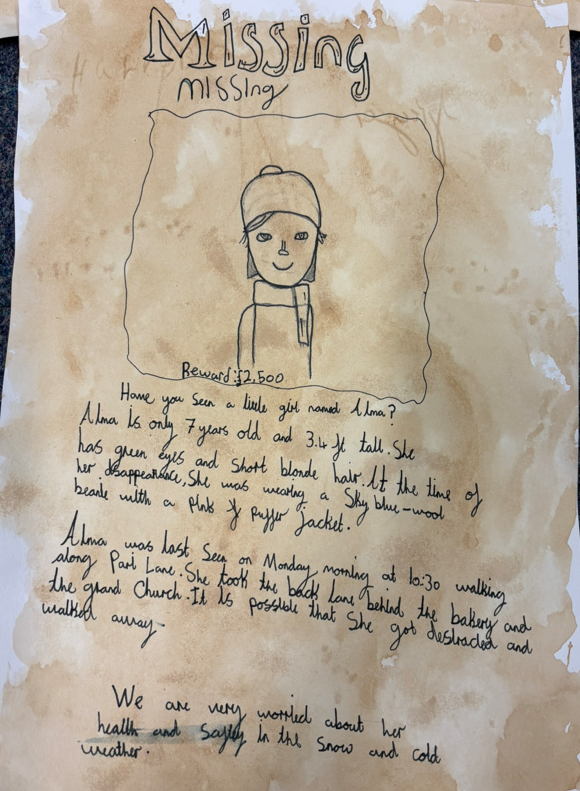 Missing
missing
Reward: £2,500
Have you seen a little girl named Alma?
Alma is only 7 years old and 3.4 ft tall. She
has green eyes and short blonde hair. At the time of
her disappearance, She was wearing a Sky blue-wool
beanie with a pink puffer jacket.
Alma was last seen on Monday morning at 10:30 walking
along Parl Lane. She took the back lane behind the bakery and
the grand Church. It is possible that She got destracted and
walked away.
We are very worried about her
health and safety in the snow and cold
weather.